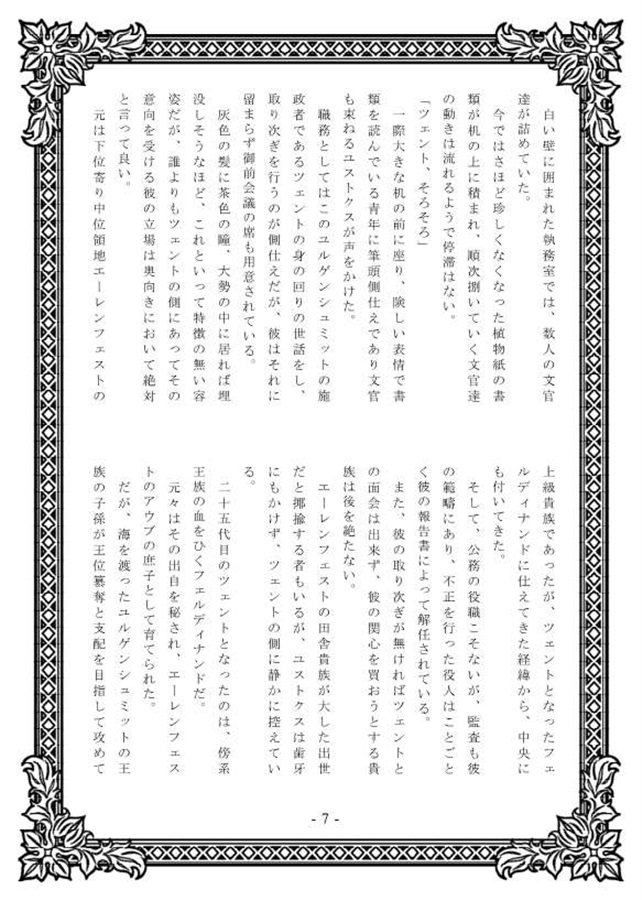 白い壁に囲まれた執務室では、数人の文官
達が詰めていた。
　今ではさほど珍しくなくなった植物紙の書
類が机の上に積まれ、順次捌いていく文官達
の動きは流れるようで停滞はない。
「ツェント、そろそろ」
　一際大きな机の前に座り、険しい表情で書
類を読んでいる青年に筆頭側仕えであり文官
も束ねるユストクスが声をかけた。
　職務としてはこのユルゲンシュミットの施
政者であるツェントの身の回りの世話をし、
取り次ぎを行うのが側仕えだが、彼はそれに
留まらず御前会議の席も用意されている。
　灰色の髪に茶色の瞳、大勢の中に居れば埋
没しそうなほど、これといって特徴の無い容
姿だが、誰よりもツェントの側にあってその
意向を受ける彼の立場は奥向きにおいて絶対
と言って良い。
　元は下位寄り中位領地エーレンフェストの
上級貴族であったが、ツェントとなったフェ
ルディナンドに仕えてきた経緯から、中央に
も付いてきた。
　そして、公務の役職こそないが、監査も彼
の範疇にあり、不正を行った役人はことごと
く彼の報告書によって解任されている。
　また、彼の取り次ぎが無ければツェントと
の面会は出来ず、彼の関心を買おうとする貴
族は後を絶たない。
　エーレンフェストの田舎貴族が大した出世
だと揶揄する者もいるが、ユストクスは歯牙
にもかけず、ツェントの側に静かに控えてい
る。
　二十五代目のツェントとなったのは、傍系
王族の血をひくフェルディナンドだ。
　元々はその出自を秘され、エーレンフェス
トのアウブの庶子として育てられた。
　だが、海を渡ったユルゲンシュミットの王
族の子孫が王位簒奪と支配を目指して攻めて
- 7 -